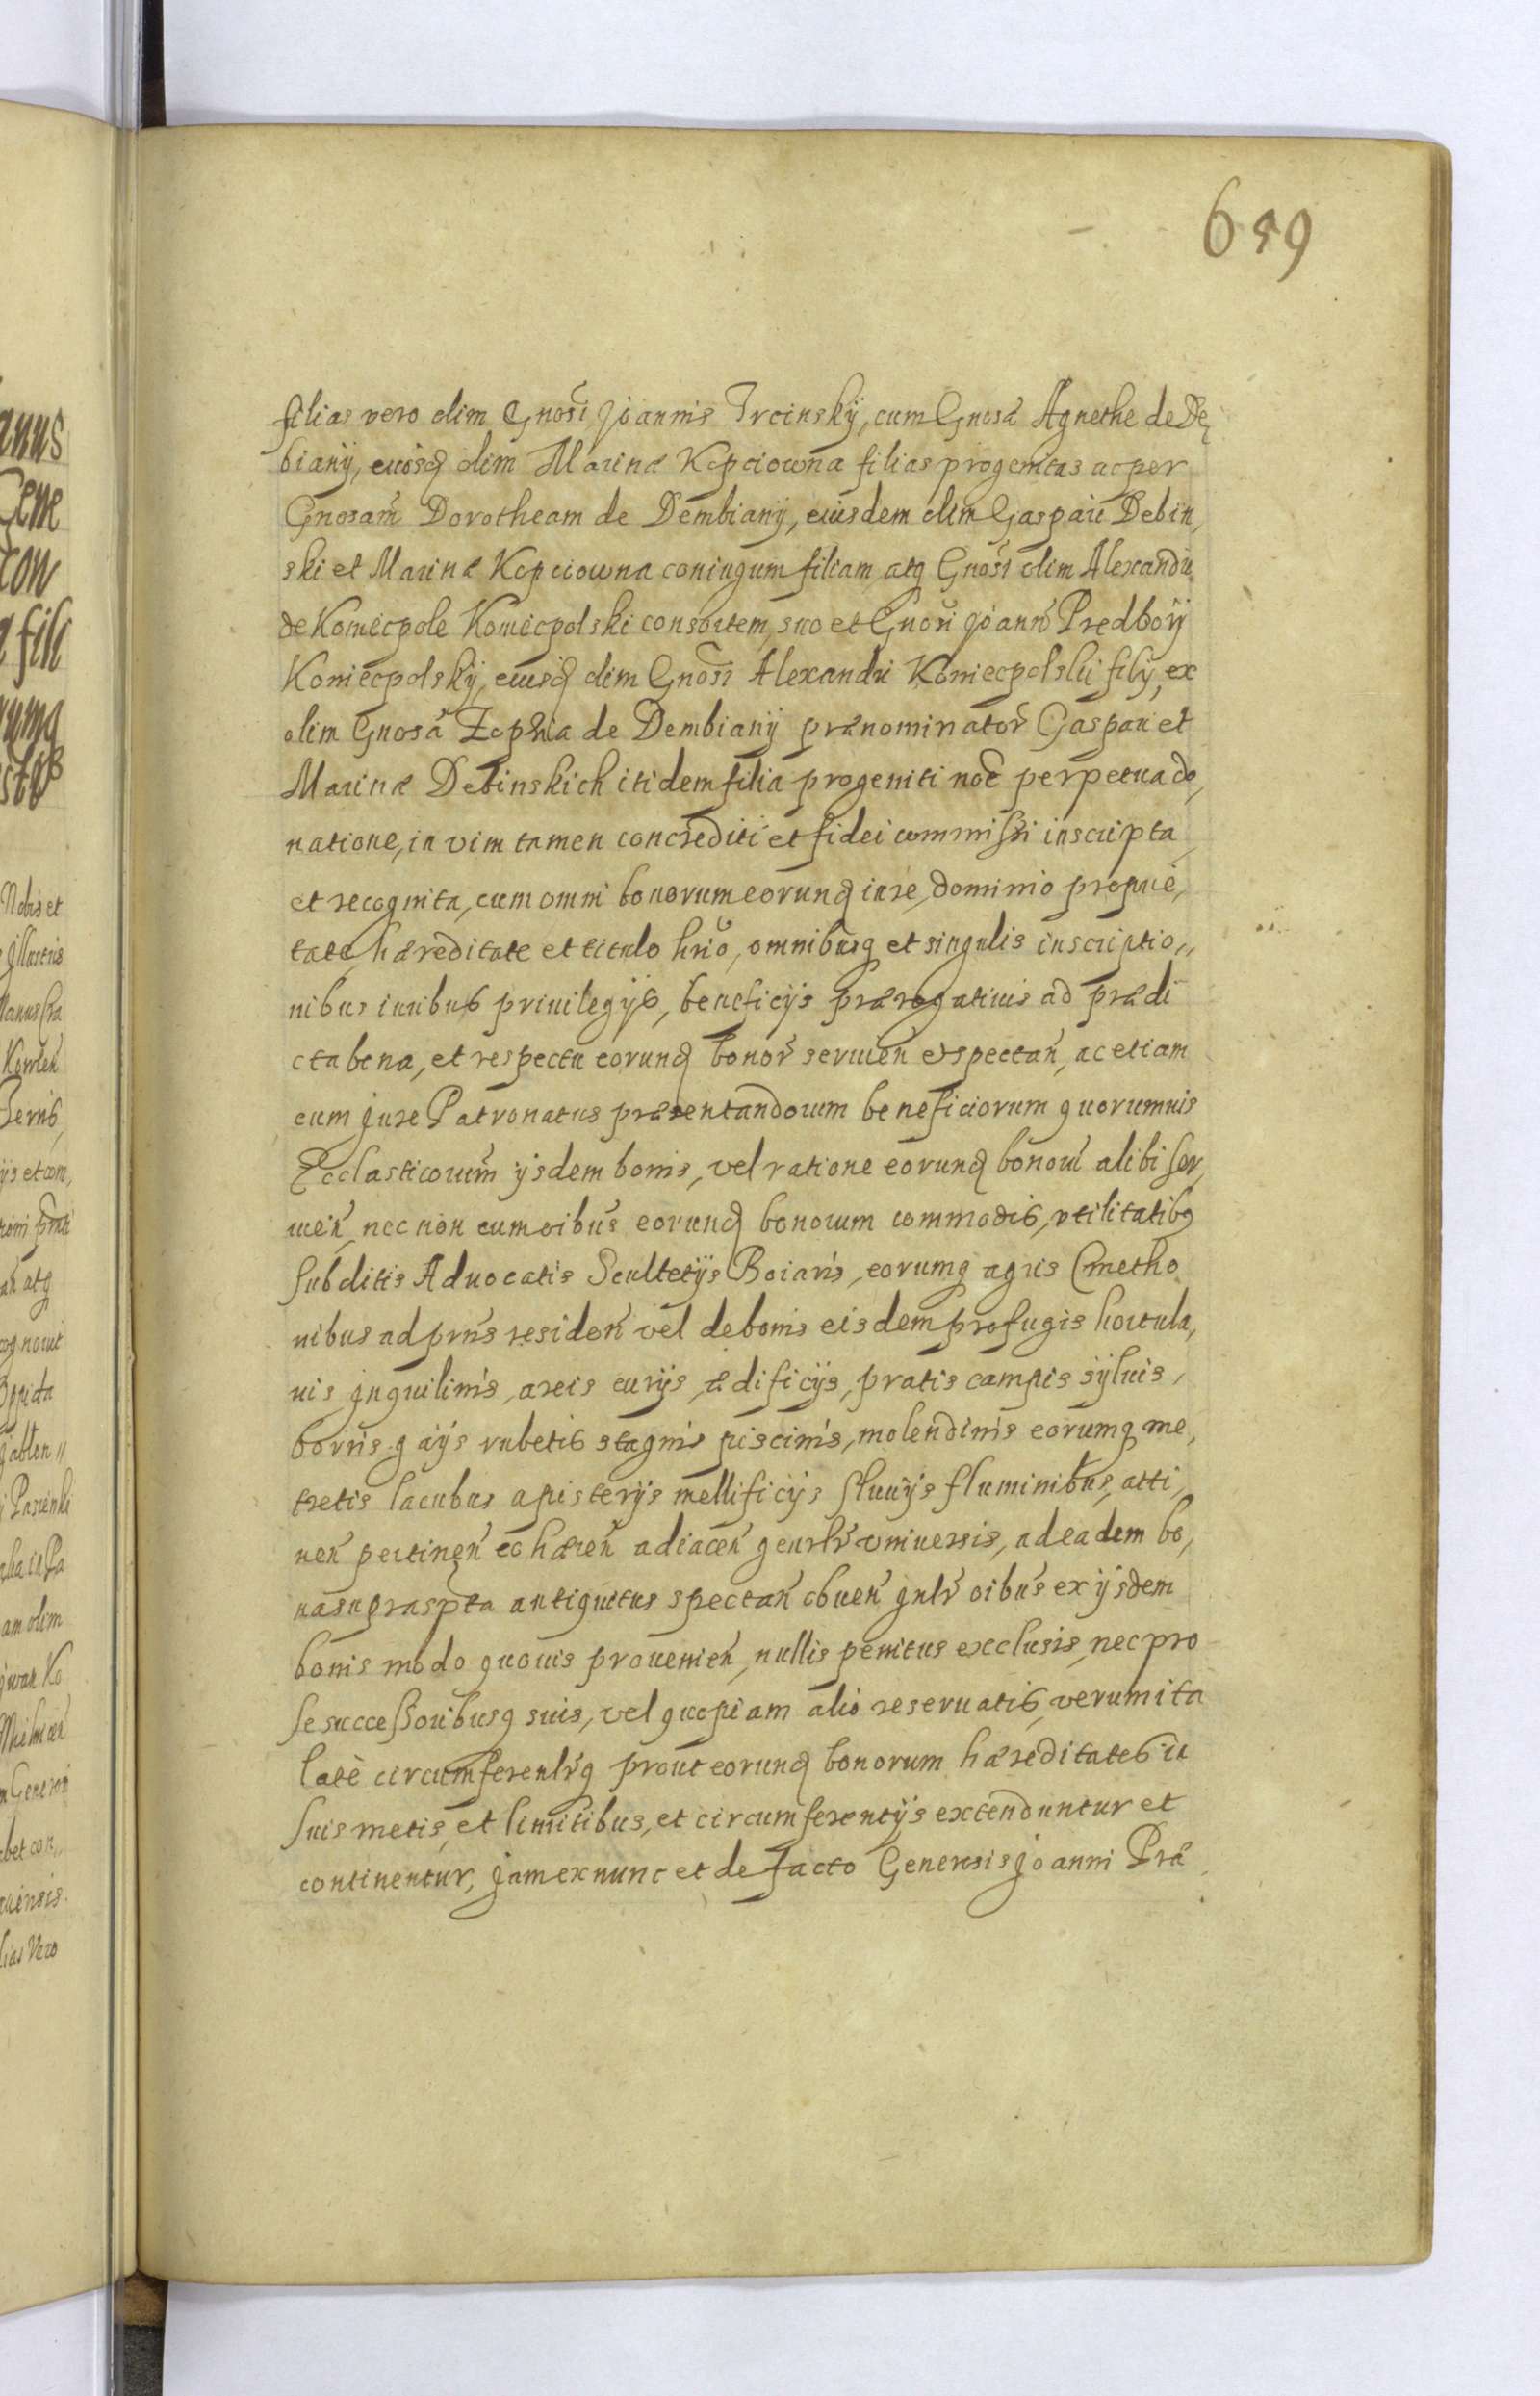 659
filias vero olim Gnosi Joannis Irzinskÿ, cum Gnosa Agnethe de Dę
bianÿ, eiusq olim Marinæ Kopciowna filias progenitas ac per
Gnosam Dorotheam de Dembianÿ, eiusdem olim Gaspari Debin,
ski et Marinæ Kopciowna coniugum filiam atq Gnosi olim Alexandri
de Koniecpole Koniecpolski consortem, suo et Gnosi Joann Predboÿ
Koniecpolskÿ, eiusq olim Gnosi Alexandri Koniecpolskii filÿ, ex
olim Gnosa Zophia de Dembianÿ prænominator Gaspari et
Marinæ Debinskich itidem filia progeniti noe perpetua do,
natione, in vim tamen concrediti et fidei commissi inscripta
et recognita, cum omni bonorum eorunq iure, dominio proprie,
tate, hæreditate et titulo hrio, omnibusq et singulis inscriptio,,
nibus iuribus priuilegÿs, beneficÿs prærogatiuis ad prædi
cta bona, et respectu eorunq bonor seruien et spectan, ac etiam
cum Jure Patronatus præsentandorum beneficiorum quorumuis
Ecclasticorum ÿsdem bonis, vel ratione eorunq bonorum alibi ser,
uien, nec non cum oibus eorunq bonorum commodis, vtilitatibq
subditis Aduocatis Scultetÿs Boiaris, eorumq agris Cmetho
nibus ad prns residen vel de bonis eisdem profugis hortula,
nis Jnquilinis, areis curÿs, ædificÿs, pratis campis sÿluis,
borris gaÿs rubetis stagnis piscinis, molendinis eorumq me,
tretis lacubus apisterÿs mellificÿs fluuÿs fluminibus, atti,
nen pertinen cohæren adiacen genrlr vniuersis, ad eadem bo,
na supraspta antiquitus spectan obuen gnlr oibus ex ÿsdem
bonis modo quouis prouenien, nullis penitus excclusis, nec pro
se successoribusq suis, vel quopiam alio reseruatis, verum ita
latè circumferenlrq prout eorunq bonorum hæreditates in
suis metis, et limitibus, et circumferentÿs extenduntur et
continentur, Jam ex nunc et de facto Generosis Joanni Præ